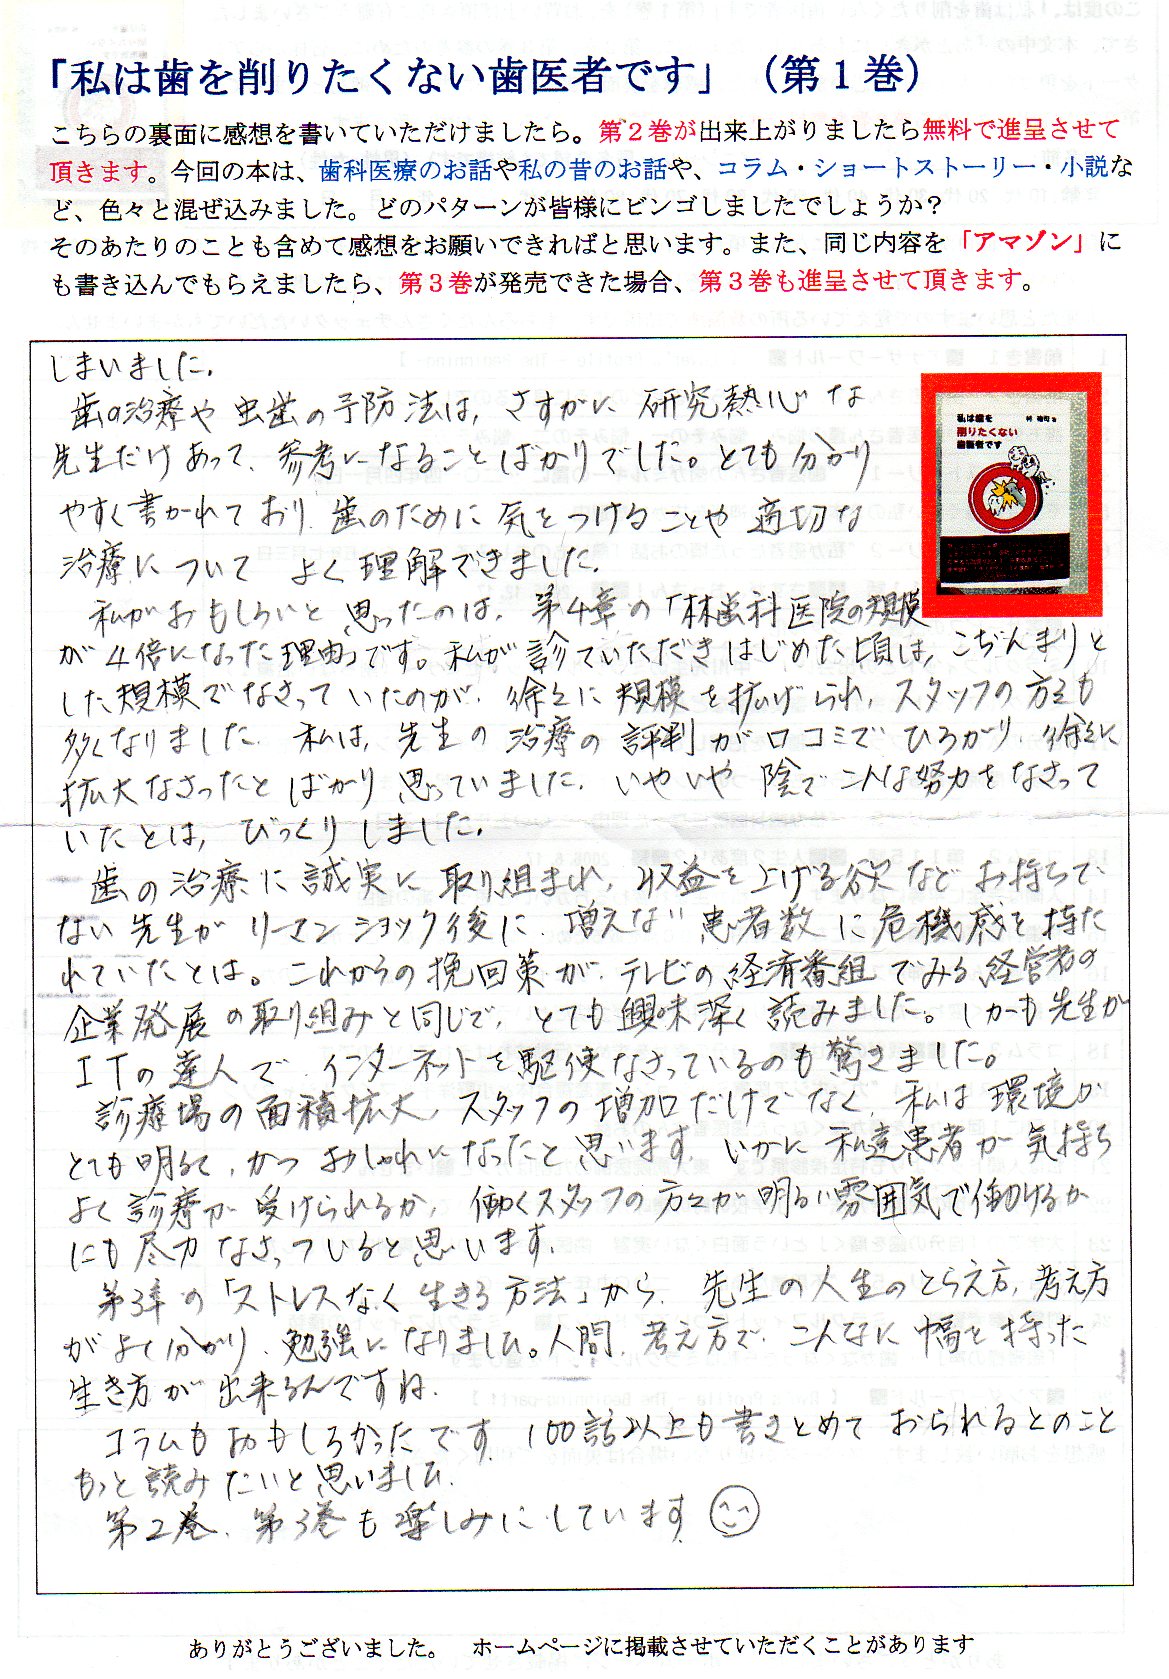 「私は歯を削りたくない歯医者です」（第１巻）
こちらの裏面に感想を書いていただけましたら。第２巻が出来上がりましたら無料で進呈させて
頂きます。今回の本は、歯科医療のお話や私の昔のお話や、コラム・ショートストーリー・小説な
ど、色々と混ぜ込みました。どのパターンが皆様にビンゴしましたでしょうか？
そのあたりのことも含めて感想をお願いできればと思います。また、同じ内容を「アマゾン」に
も書き込んでもらえましたら、第３巻が発売できた場合、第３巻も進呈させて頂きます。
しまいました。
歯の治療や虫歯の予防法は、さすがに研究熱心な
先生だけあって、参考になることばかりでした。とても分かり
やすく書かれており、歯のために気をつけることや適切な
治療についてよく理解できました。
私がおもしろいと思ったのは、第４章の「林歯科医院の規模
が４倍になった理由」です。私が診ていただきはじめた頃は、こぢんまりと
した規模でなさっていたのが、徐々に規模を拡げられ、スタッフの方々も
多くなりました。私は、先生の治療の評判が口コミでひろがり、徐々に
拡大なさったとばかり思っていました。いやいや陰でこんな努力をなさって
いたとは、びっくりしました。
歯の治療に誠実に取り組まれ、収益を上げる欲などお持ちで
ない先生がリーマンショック後に、増えない患者数に危機感を持た
れていたとは。これからの挽回策が、テレビの経済番組でみる経営者の
企業発展の取り組みと同じで、とても興味深く読みました。しかも先生が
ＩＴの達人で、インターネットを駆使なさっているのも驚きました。
診療場の面積拡大、スタッフの増加だけでなく、私は環境が
とても明るく、かつおしゃれになったと思います。いかに私達患者が気持ち
よく診療が受けられるか、働くスタッフの方々が明るい雰囲気で働けるか
にも尽力なさっているいると思います。
第３章の「ストレスなく生きる方法」から、先生の人生のとらえ方、考え方
がよく分かり、勉強になりました。人間、考え方で、こんなに幅を持った
生き方が出来るんですね。
コラムもおもしろかったです。100話以上も書きとめておられるとのこと
もっと読みたいと思いました。
第２巻、第３巻も楽しみにしています
私は歯を
削りたくない
歯医者です
ありがとうございました。　ホームページに掲載させていただくことがあります